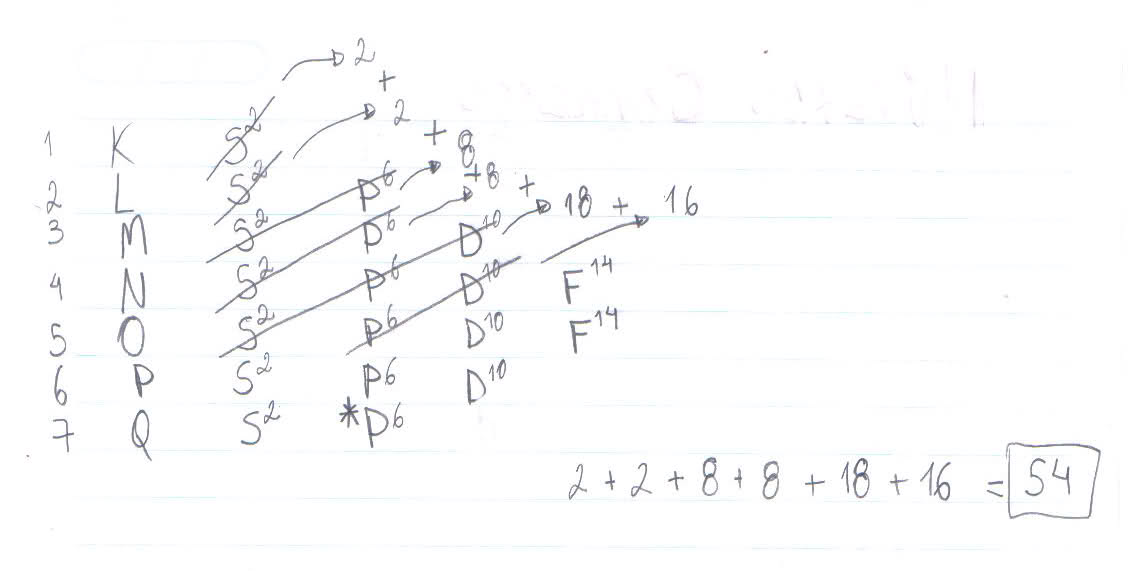 2
+
2
+ 8
+8 + 18 + 16
1 K S²
2 L S² P⁶
3 M S² P⁶ D¹⁰
4 N S² P⁶ D¹⁰ F¹⁴
5 O S² P⁶ D¹⁰ F¹⁴
6 P S² P⁶ D¹⁰
7 Q S² *P⁶
2 + 2 + 8 + 8 + 18 + 16 = 54